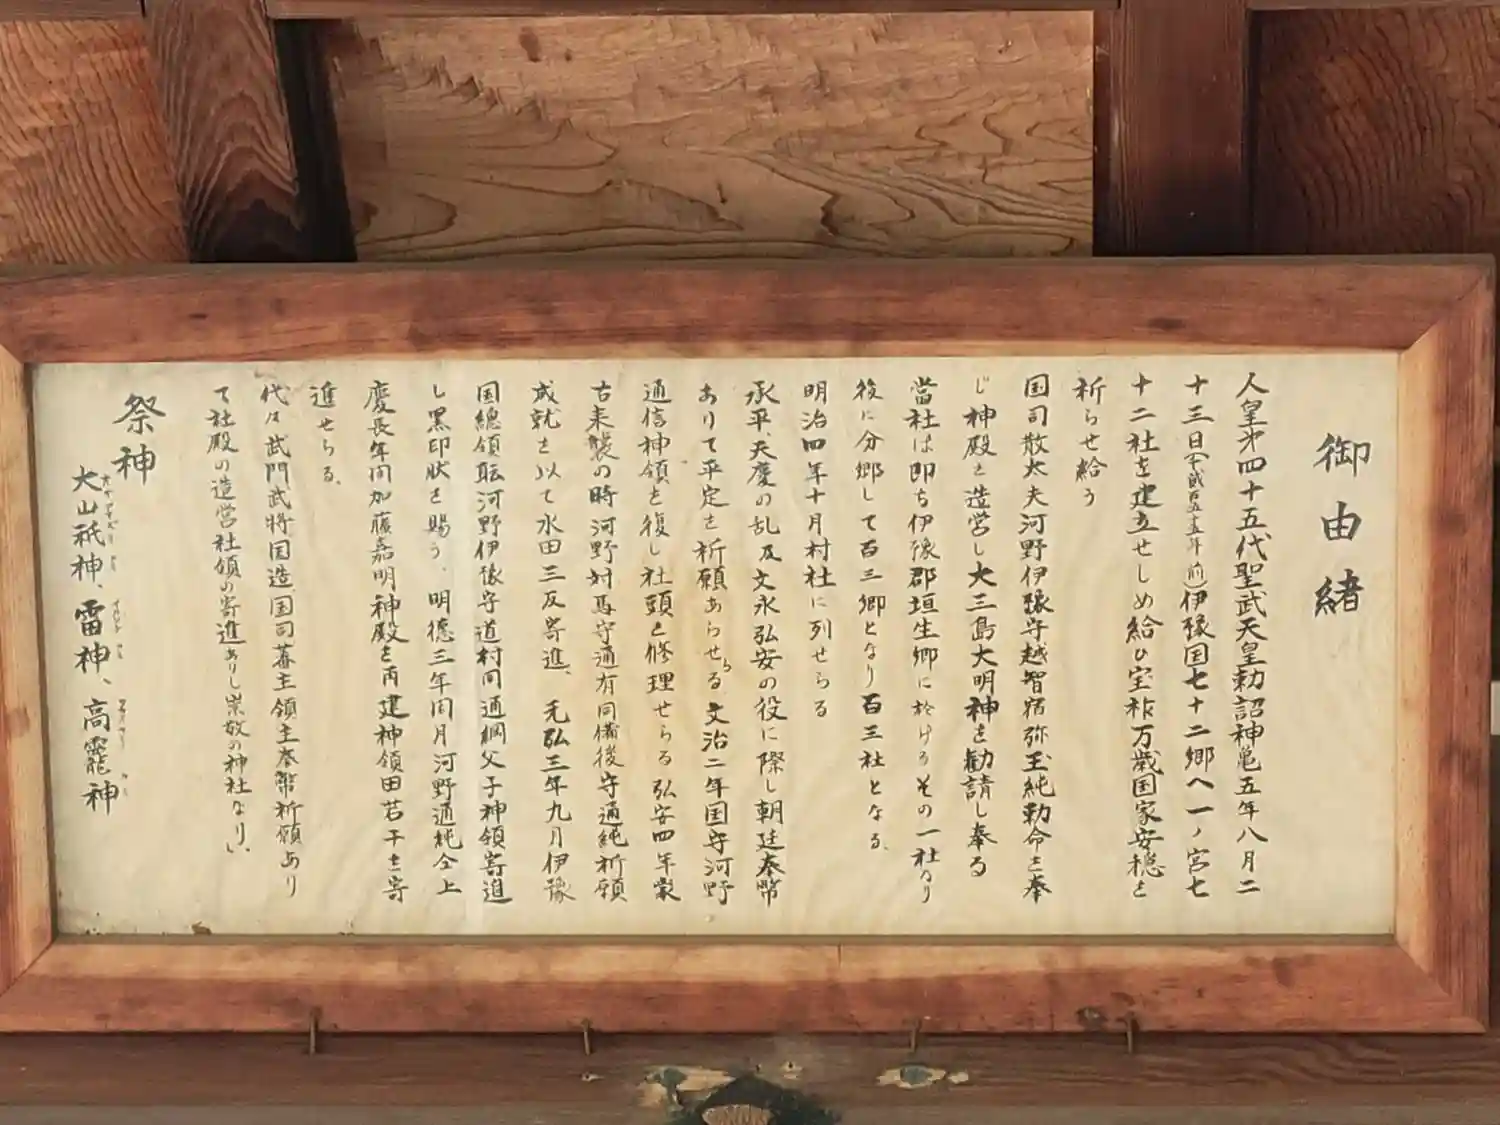 御由緒
人皇第四十五代聖武天皇勅詔神亀五年八月二
十三日(千貳百五十五年前)伊豫国七十二郷へ一ノ宮七
十二社を建立せしめ給ひ宝祚万歳国家安穏を
祈らせ給う
国司散太夫河野伊豫守越智宿弥玉純勅命を奉
じ神殿を造営し大三島大明神を勧請し奉る
當社は即ち伊豫郡垣生郷に於けるその一社なり
後に分郷して百三郷となり百三社となる、
明治四年十月村社に列せらる
承平、天慶の乱及文永弘安の役に際し朝廷奉幣
ありて平定を祈願あらせらる文治二年国守河野
通信神領を復し社頭を修理せらる弘安四年蒙
古来襲の時河野対馬守通有同備後守通純祈願
成就を以て水田三反寄進、元弘三年九月伊豫
国總領転河野伊豫守道村同通綱父子神領寄進
し黒印状を賜う、明徳三年閏月河野通純仝上
慶長年间加藤嘉明神殿を再建神領田若干を寄
進せらる、
代々武門武将国造国司幕主領主奉幣祈願あり
て社殿の造営社領の寄進ありし崇敬の神社なり、
祭神
大山祇神、雷神、高龗神